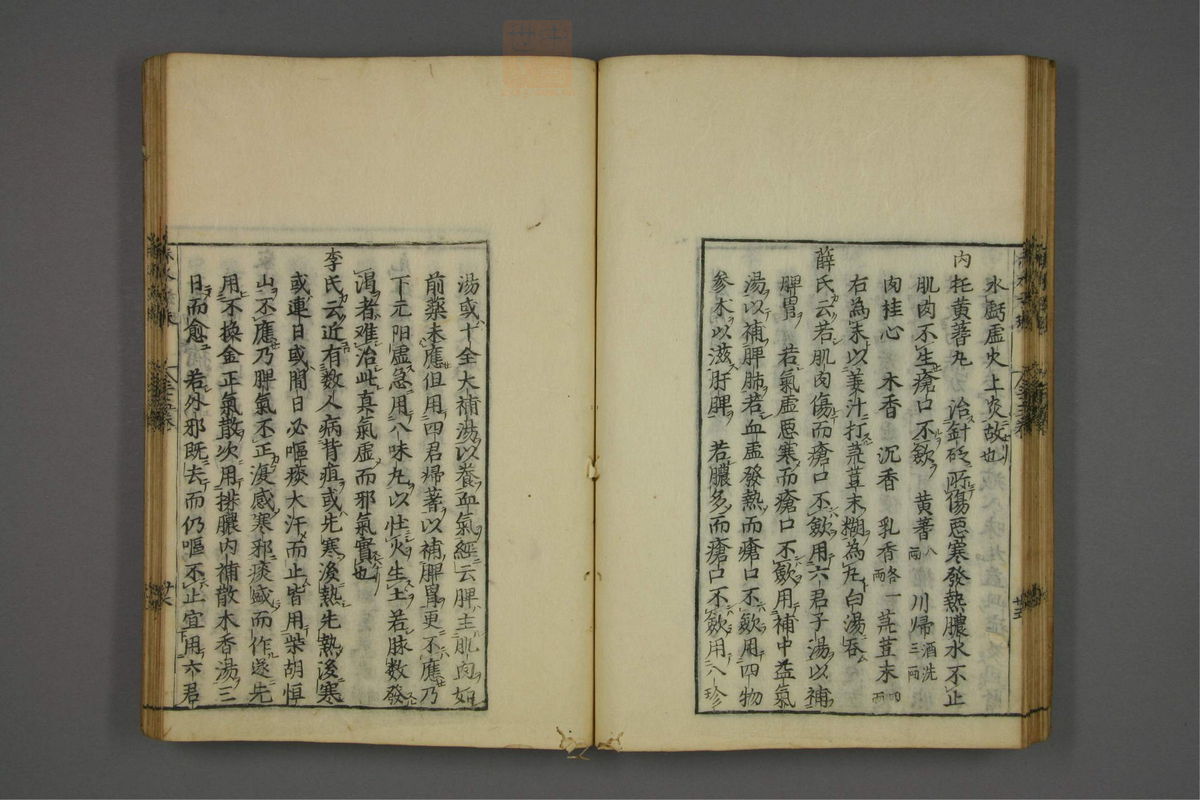 水虧虛火上炎故也
内托黄蓍丸 治針砭所傷惡寒發熱膿水不止
肌肉不生瘡口不歛 黄蓍八兩 川歸酒洗三兩
肉桂心 木香 沉香 乳香各一兩 菉荳末四兩
右為末以姜汁打菉荳末糊為丸白湯吞
薛氏云若肌肉傷而瘡口不歛用六君子湯以補
脾胃 若氣虛惡寒而瘡口不歛用補中益氣
湯以補脾肺若血虛發熱而瘡口不歛用四物
參朮以滋肝脾 若膿多而瘡口不歛用八珍
湯或十全大補湯以養血氣經云脾主肌肉如
前藥未應但用四君歸蓍以補脾胃更不應乃
下元阳虛急用八味丸以壮火生土若脉数發
渴者难治此真氣虛而邪氣實也
李氏云近有数人病背疽或先寒後熱先熱後寒
或連日或間日必嘔痰大汗而止皆用柴胡恒
山不應乃脾氣不正復感寒邪痰盛而作遂先
用不換金正氣散次用排膿内補散木香湯三
日而愈 若外邪既去而仍嘔不止宜用六君